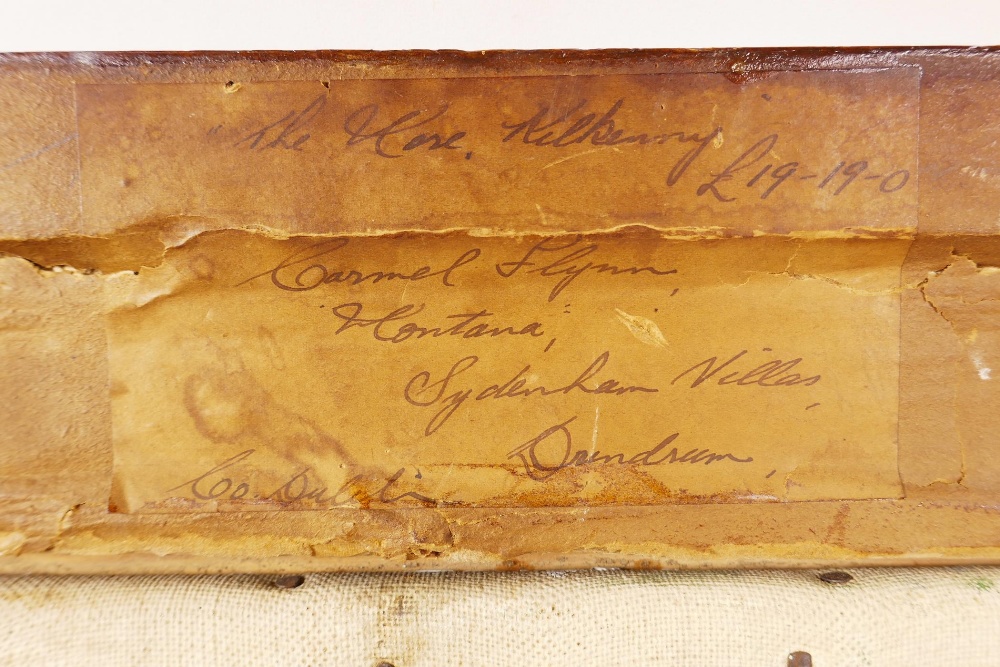 "The Nore, Kilkenny"
£19-19-0
Carmel Flynn,
"Montana",
Sydenham Villas,
Dundrum,
Co Dublin